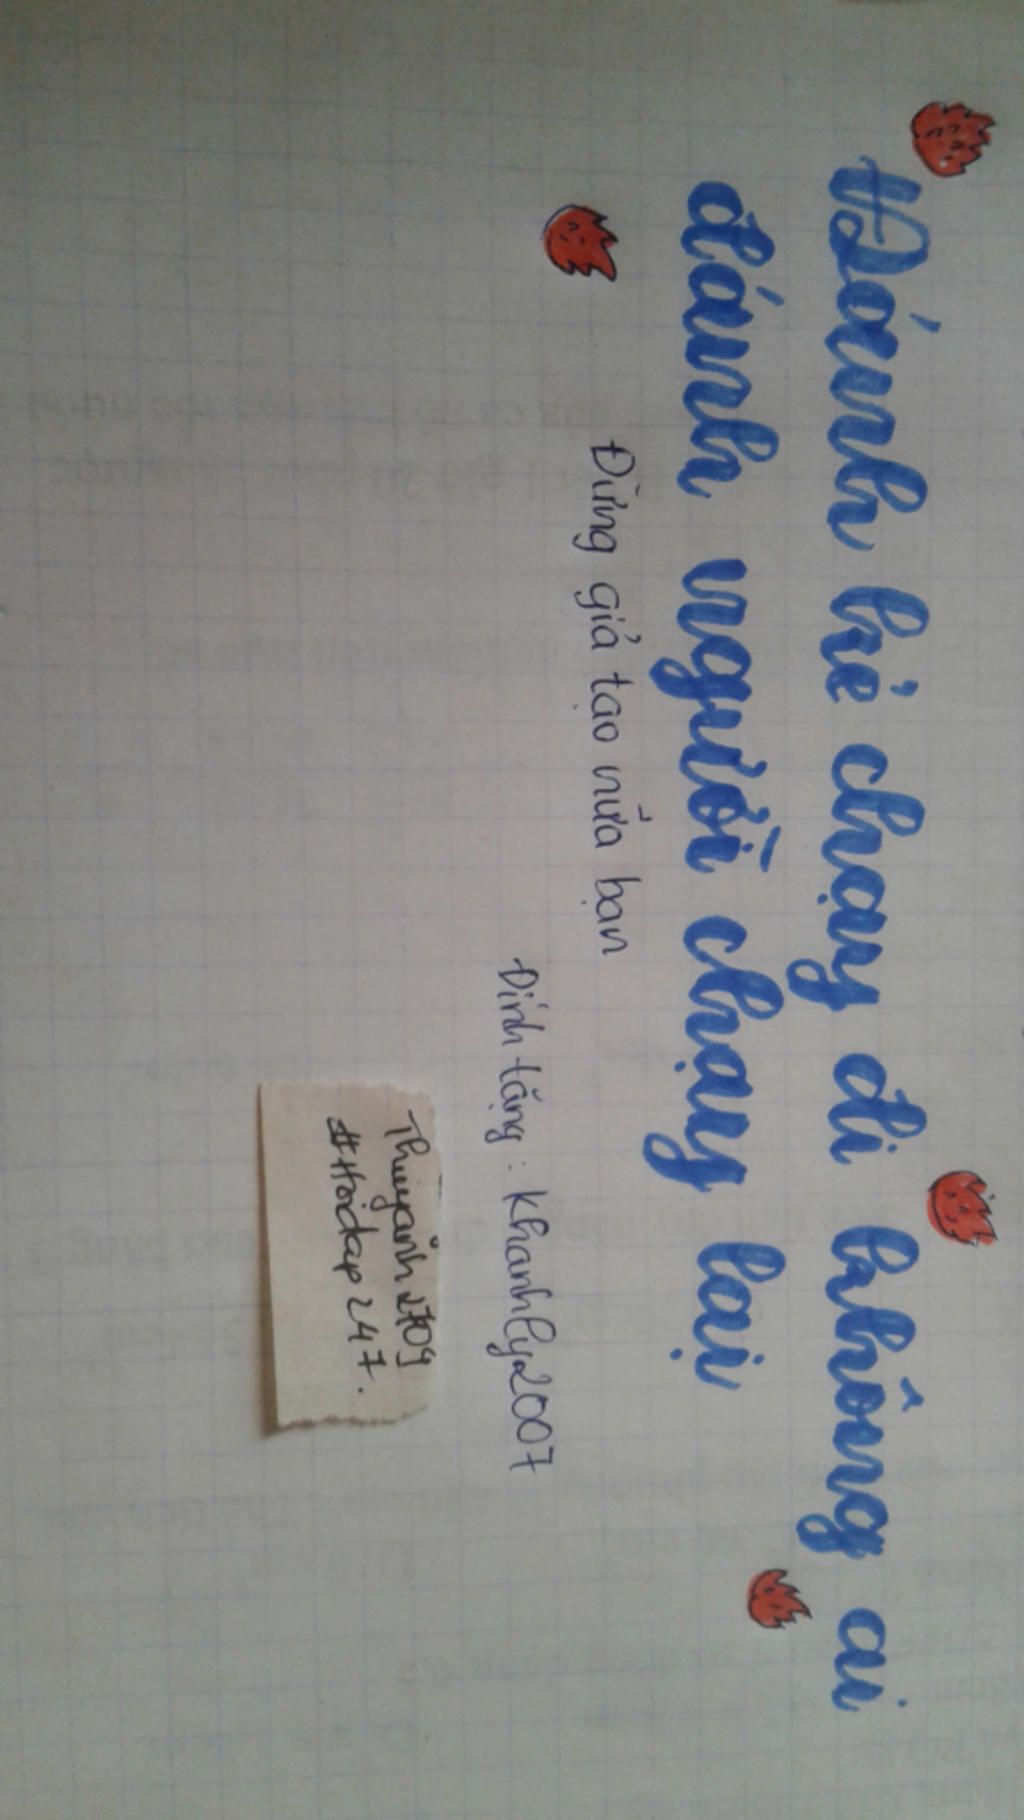 Đánh kẻ chạy đi không ai
đánh người chạy lại
Đừng giả tạo nữa bạn
Đính tặng : Khanhly2007
Thuyanh2709
#Hoidap247.